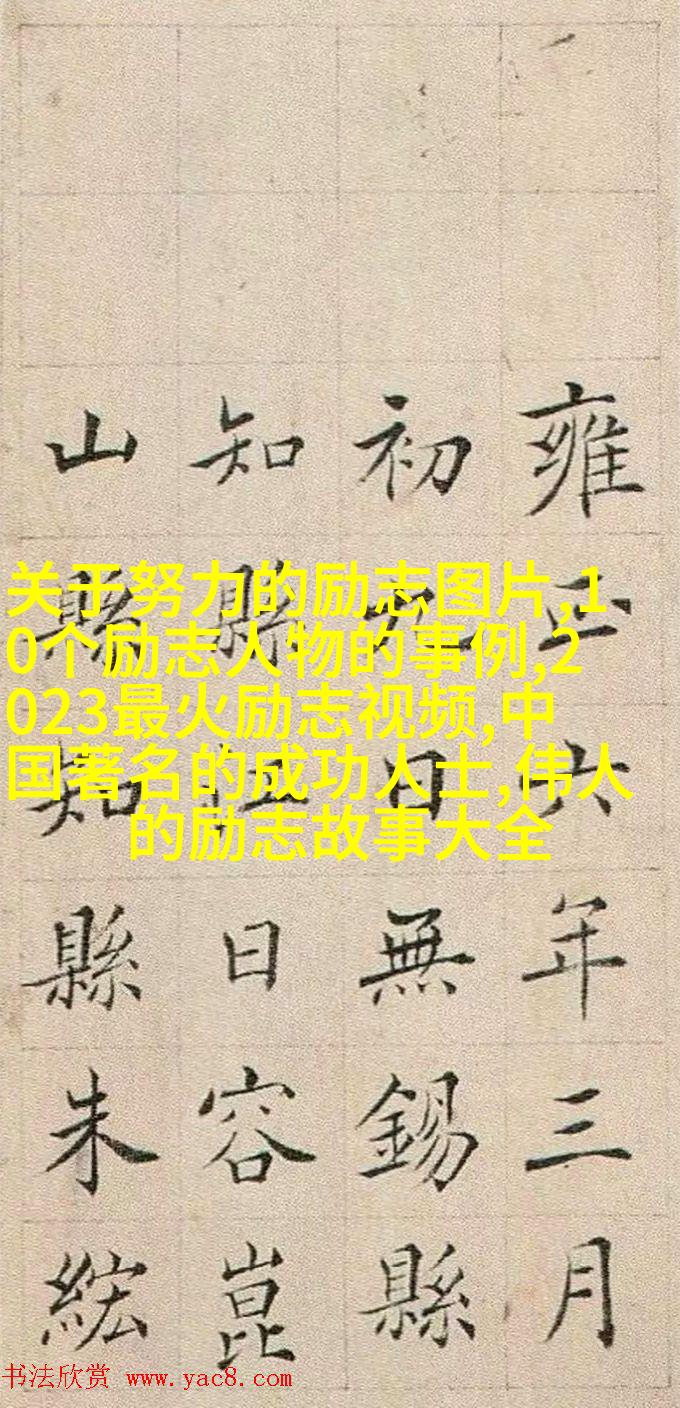 雍正六年三月
初九日無錫縣
知縣江日容崑
山縣知縣朱綋
关于努力的励志图片,1
0个励志人物的事例,2
023最火励志视频,中
国著名的成功人士,伟人
的励志故事大全
书法欣赏 www.yac8.com